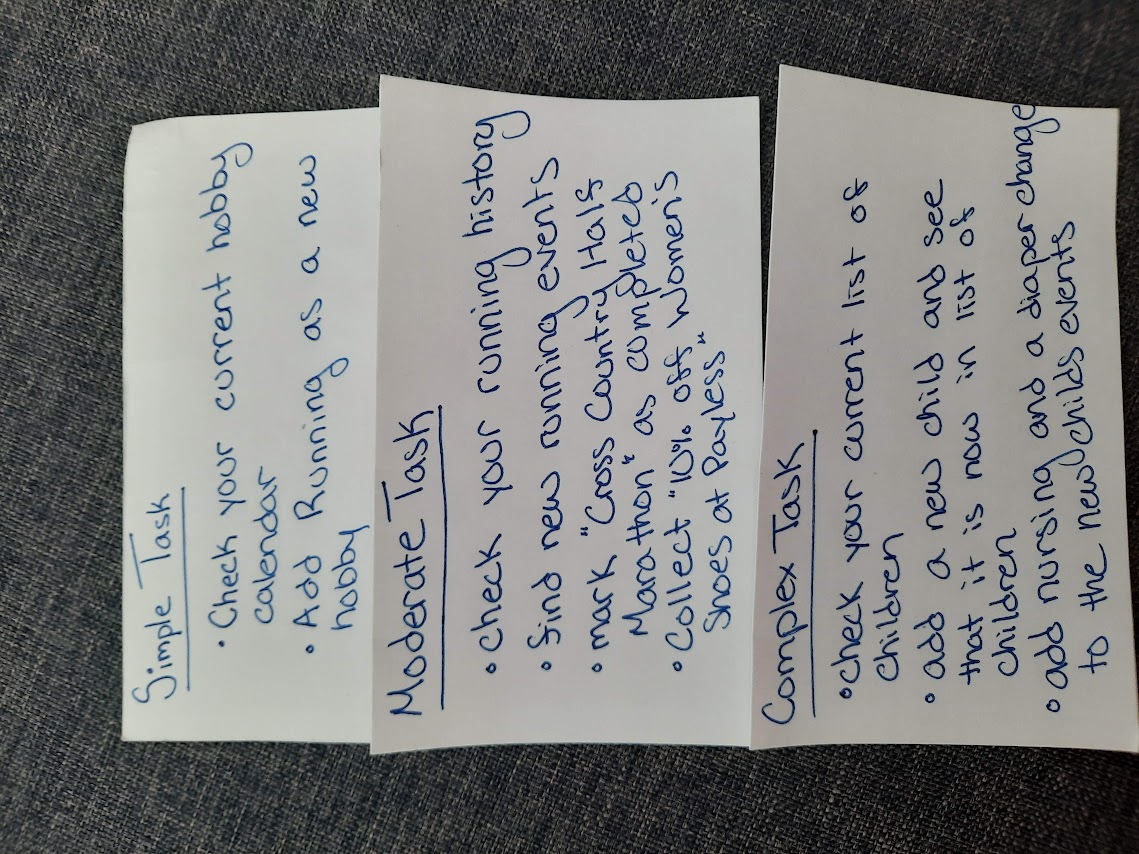 Simple Task
• Check your current hobby
calendar
• Add Running as a new
hobby
Moderate Task
• check your running history
• find new running events
• mark "Cross Country Half
Marathon" as completed
• Collect "10% off Women's
Shoes at Payless"
Complex Task
• check your current list of
children
• add a new child and see
that it is now in list of
children
• add nursing and a diaper change
to the new childs events